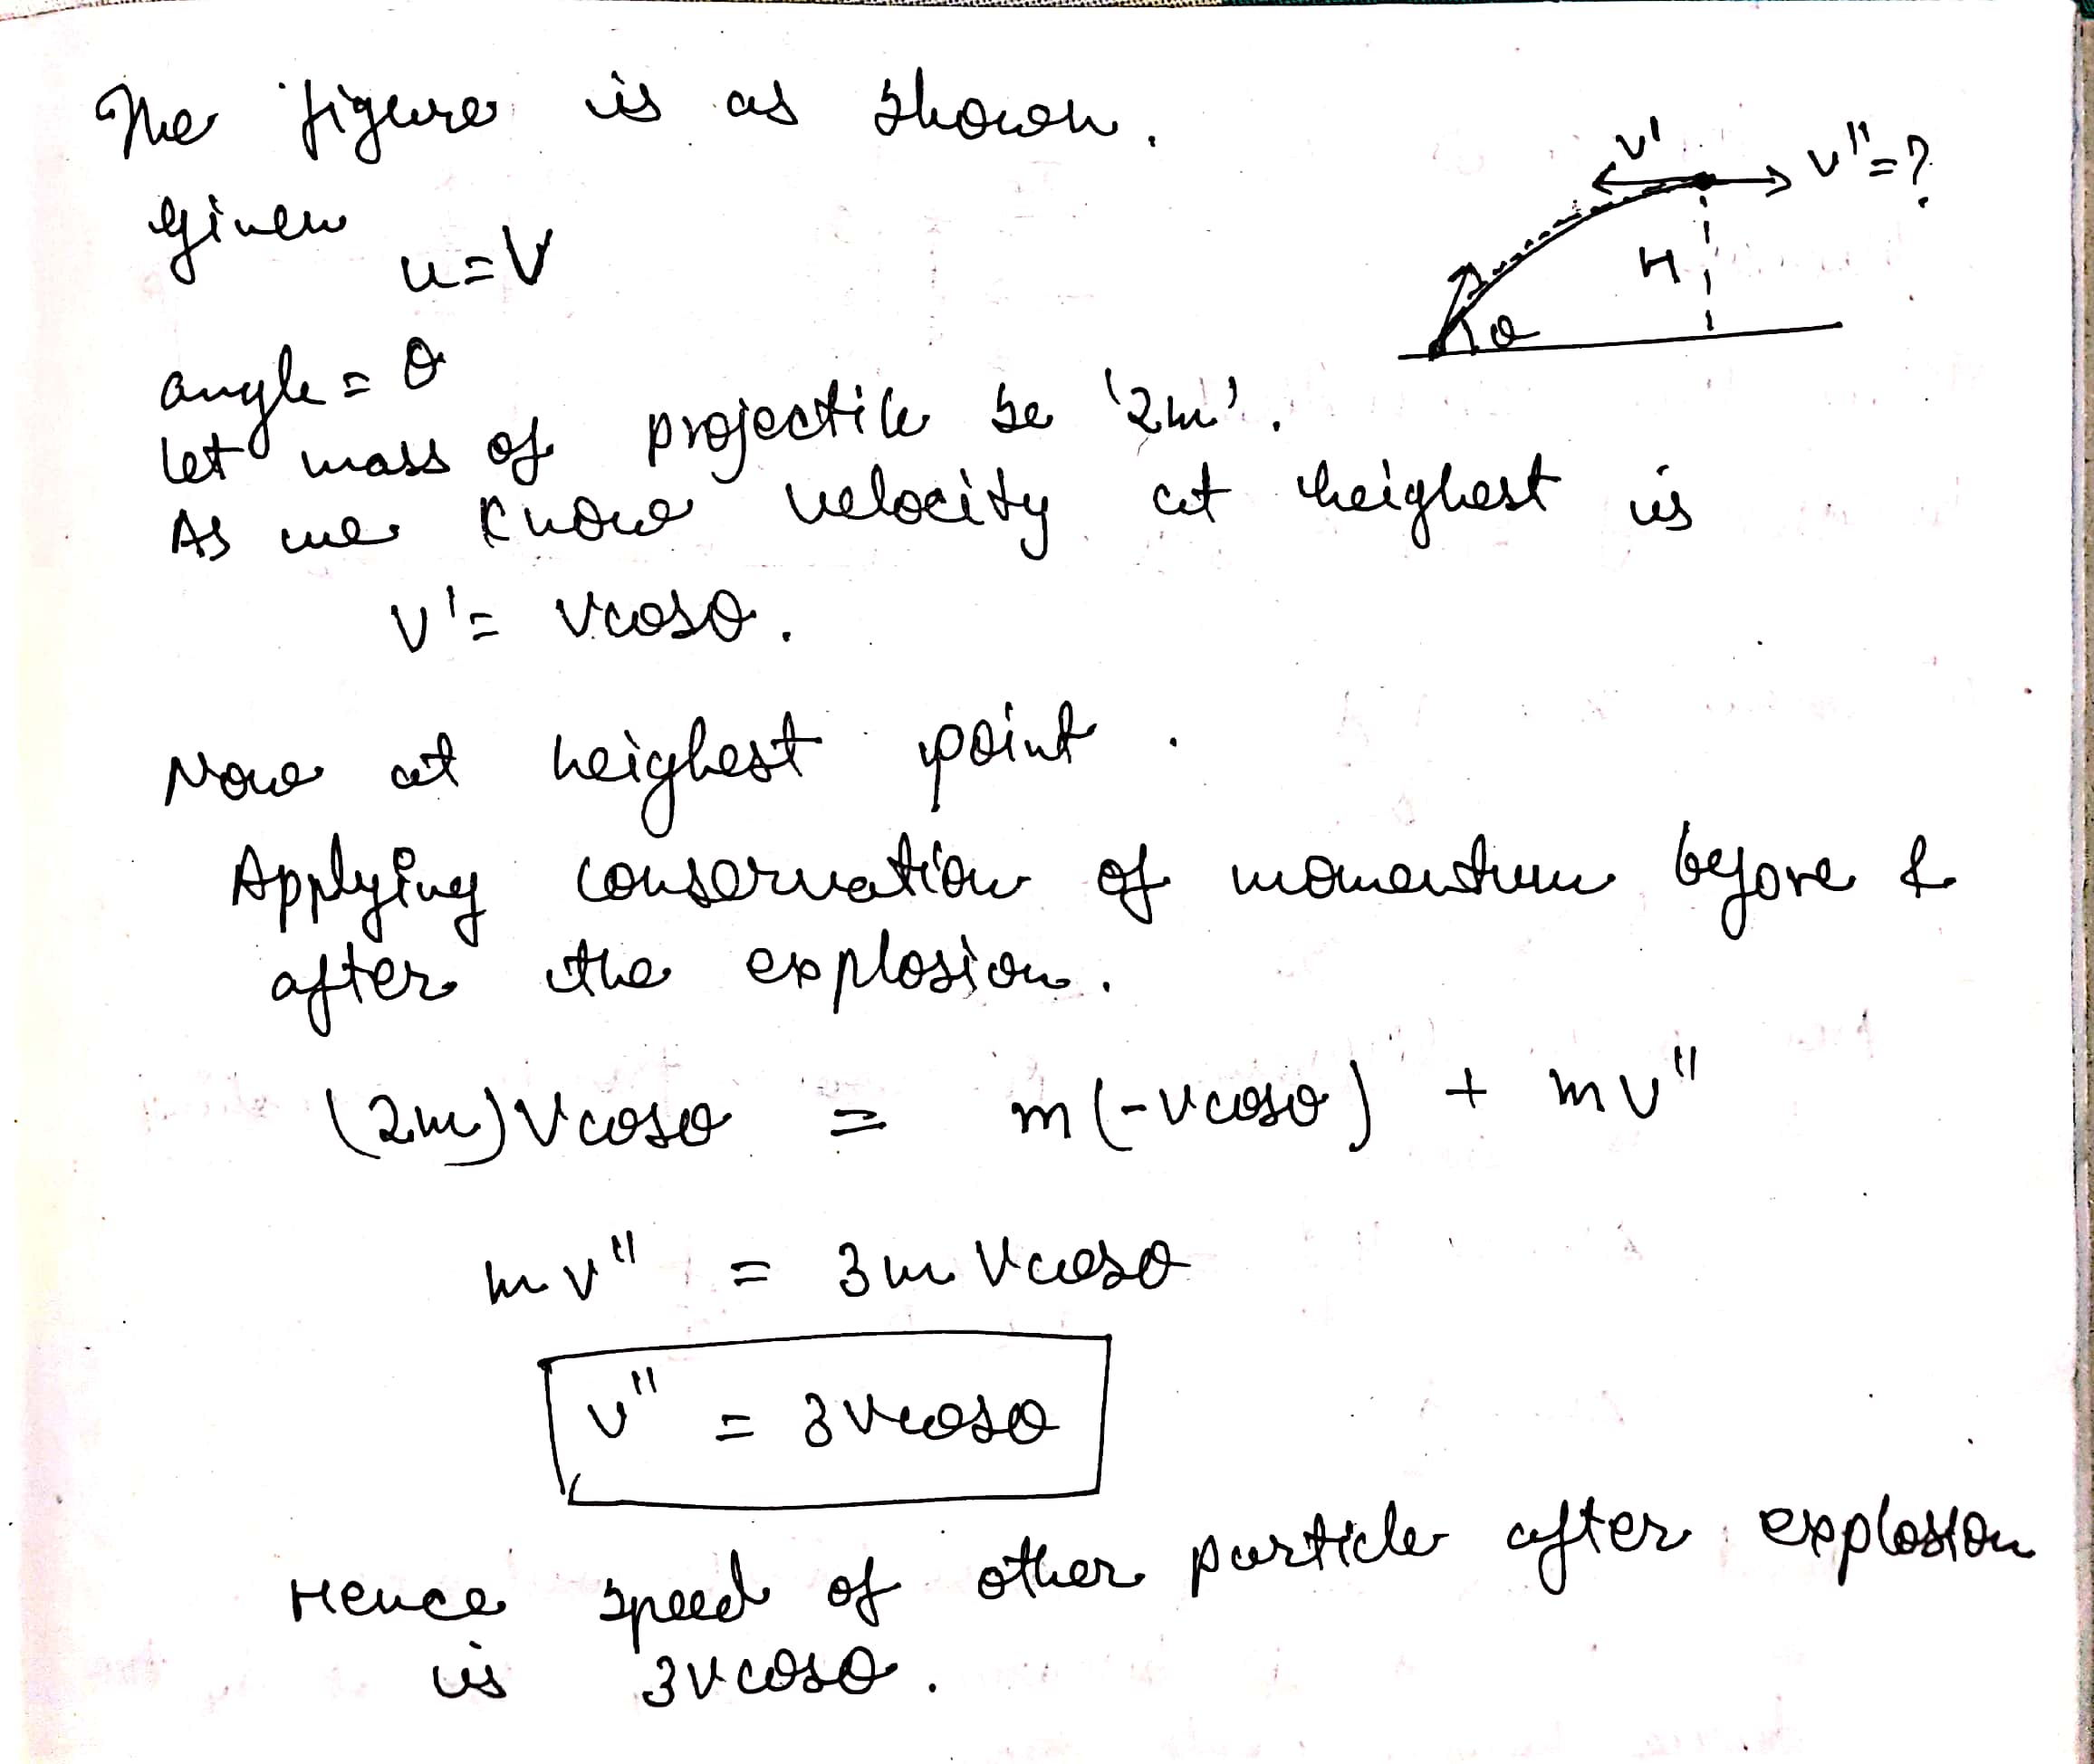 The figure is as shown.
given
u=V
angle = θ
let mass of projectile be '2m'.
As we know velocity at heighest is
v' = vcosθ.
Now at heighest point.
Applying conservation of momentum before &
after the explosion.
(2m)vcosθ = m(-vcosθ) + mv"
mv" = 3mvcosθ
v" = 3vcosθ
Hence speed of other particle after explosion
is 3vcosθ.
v'
v"=?
H
θ